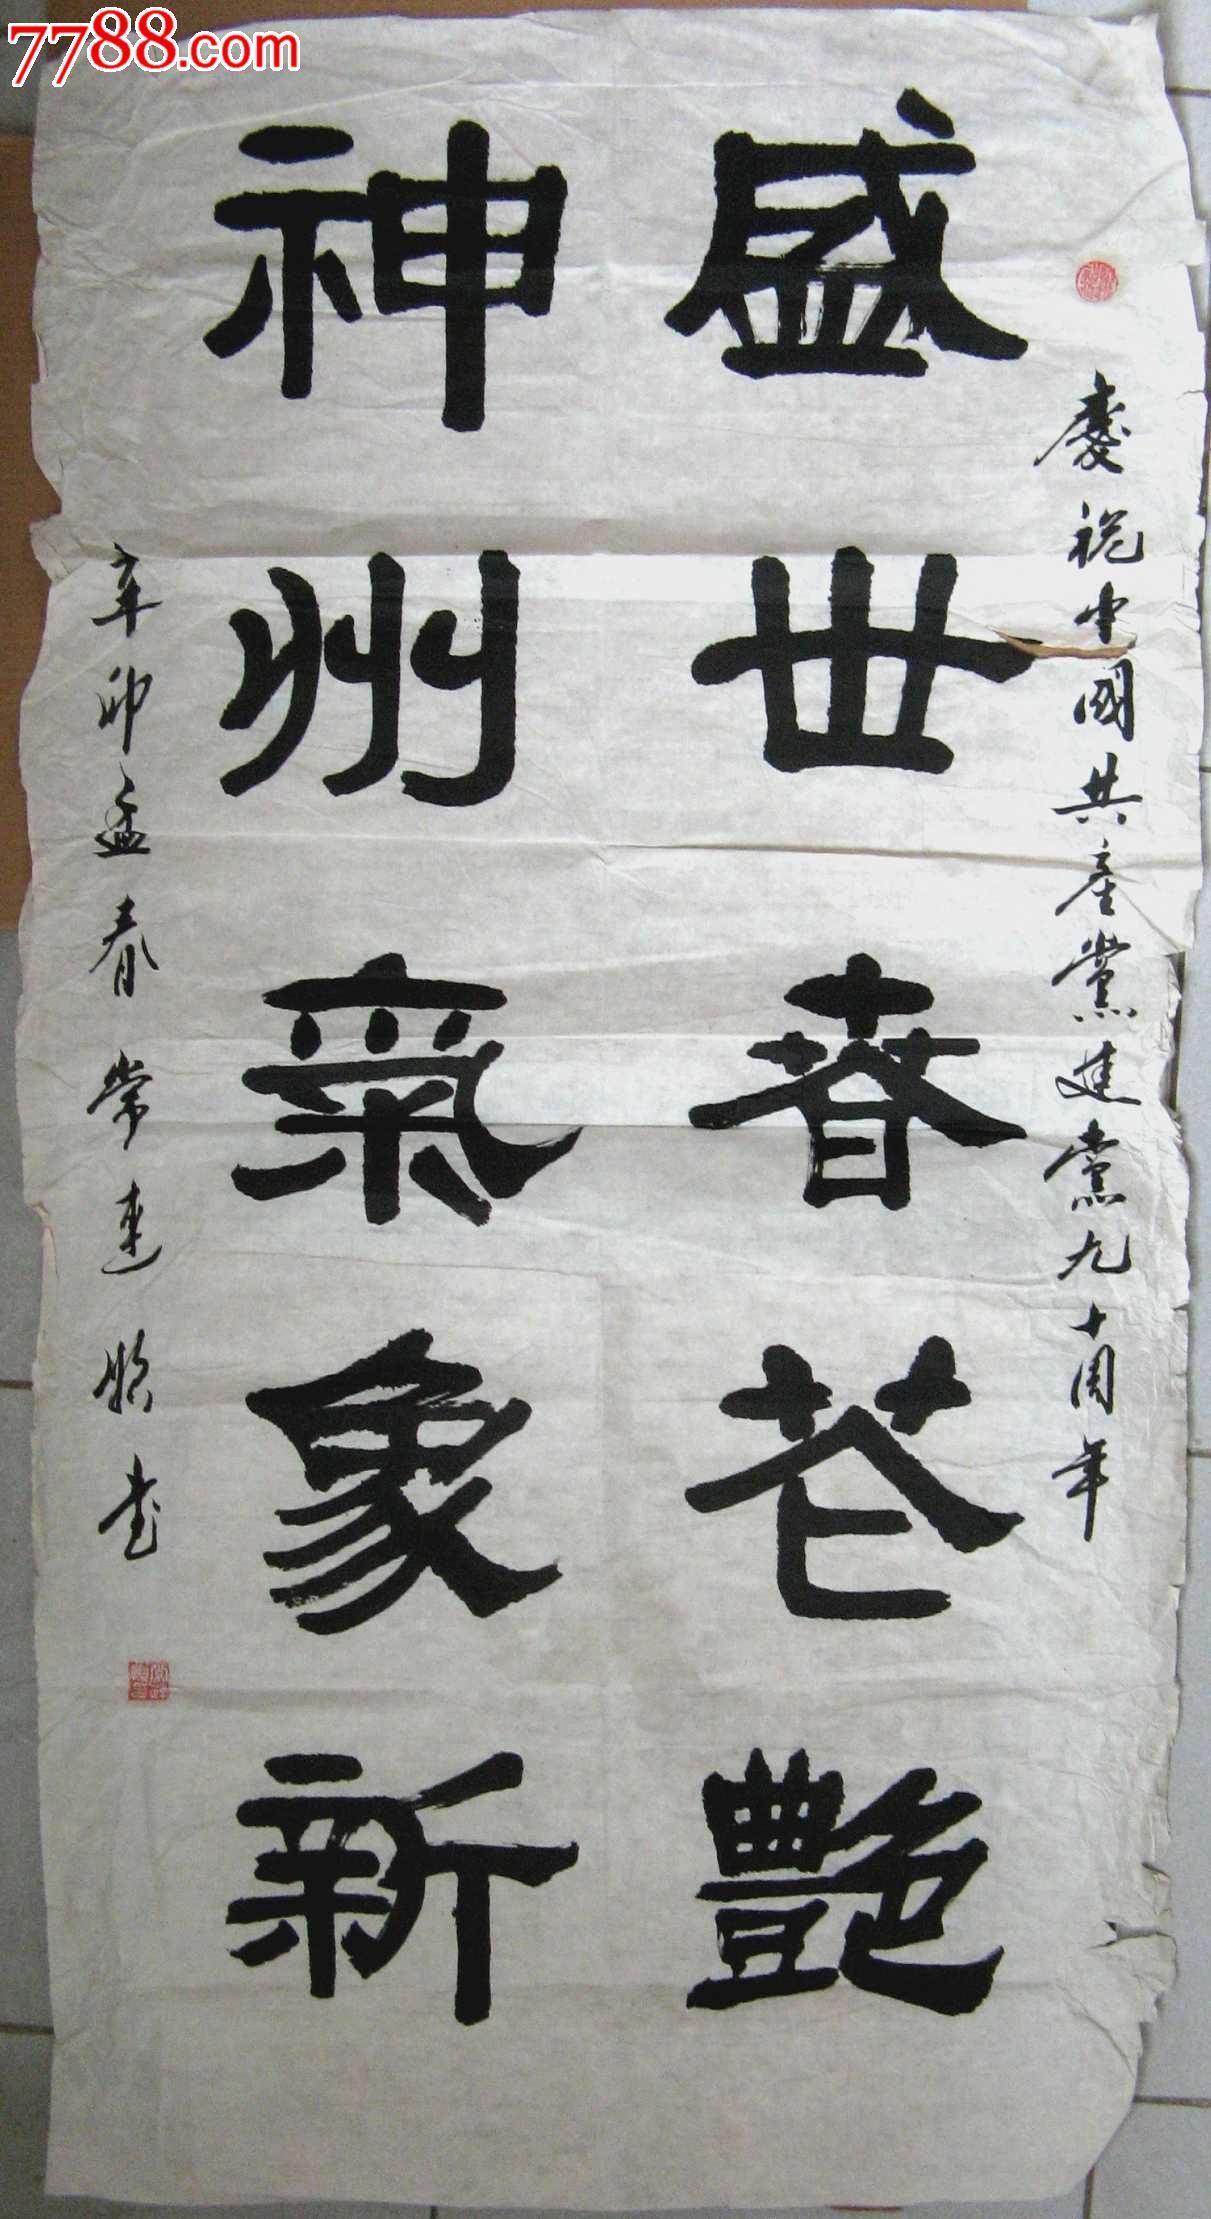 7788.com
慶祝中國共產黨建黨九十周年
盛世春花艷
神州氣象新
辛卯孟春常連順書